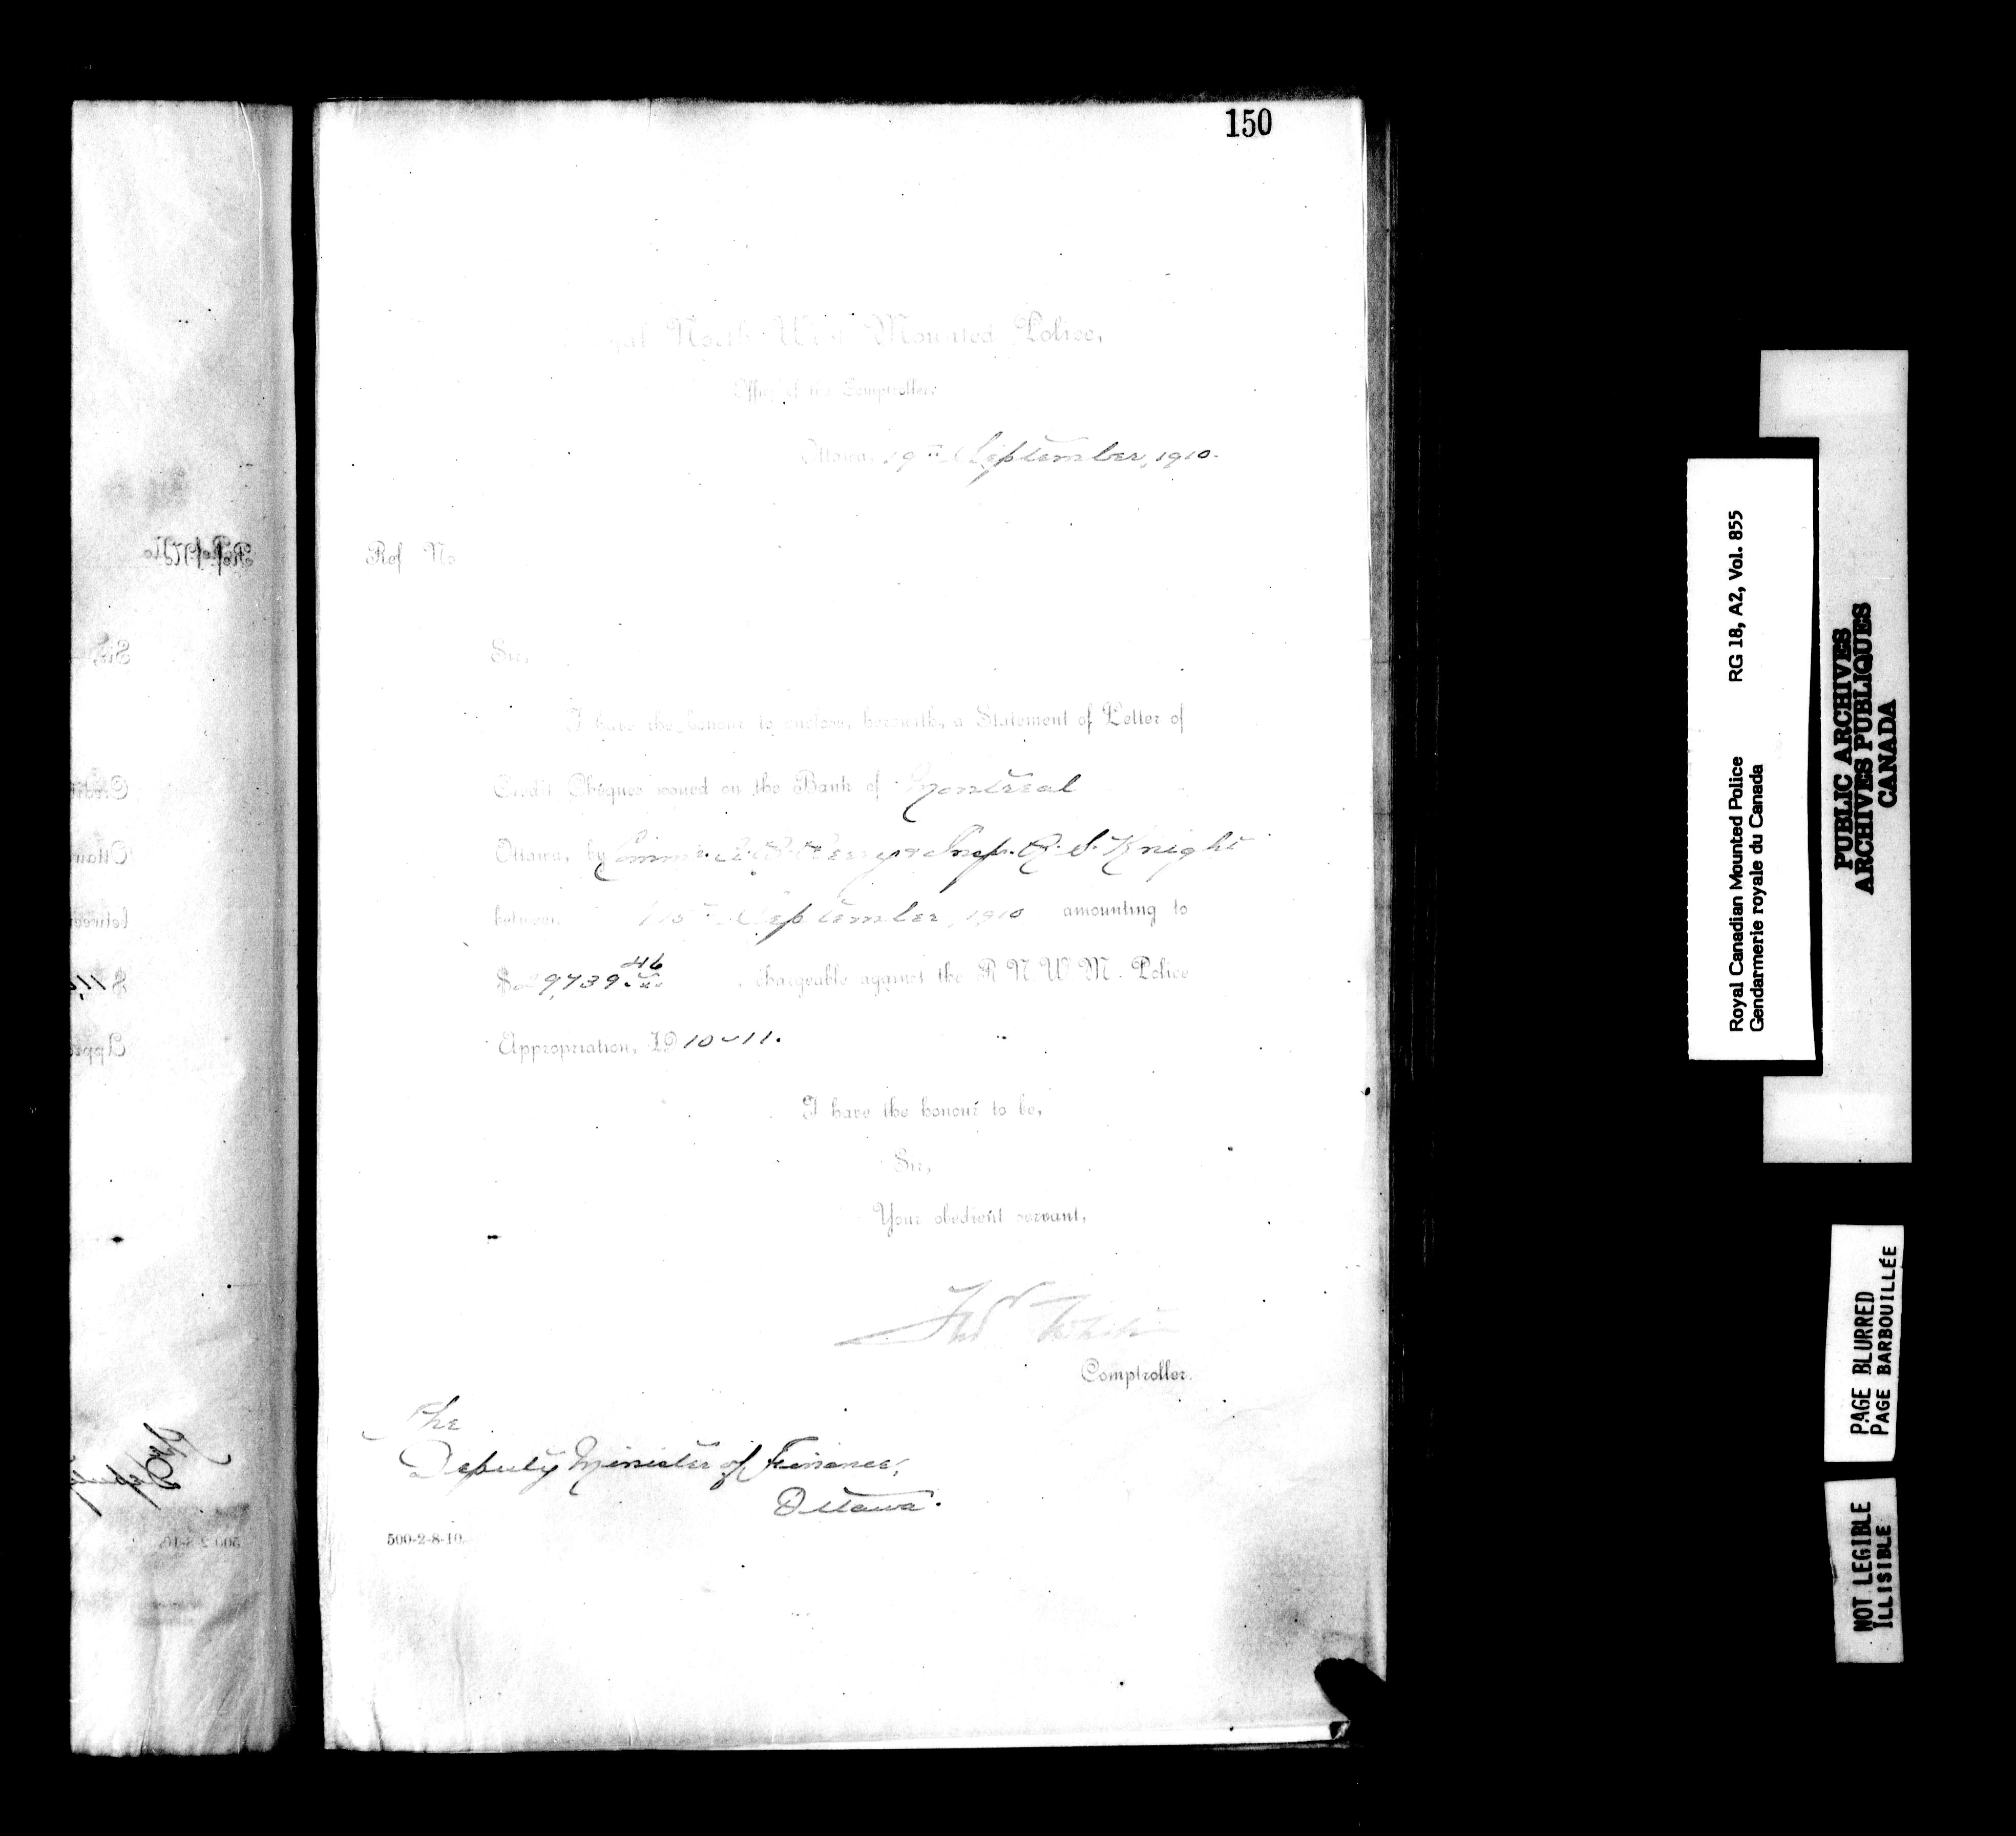 150
North-West Mounted Police,
Office of the Comptroller.
Ottawa, 19th September, 1910.
Ref No
Sir,
I have the honour to enclose, herewith, a Statement of Letter of
Credit Cheques issued on the Bank of Montreal
Ottawa, by Commr. Perry & Insp. R. S. Knight
between September, 1910 amounting to
$ 9,739 46 , chargeable against the R N W M. Police
Appropriation, 1910-11.
I have the honour to be,
Sir,
Your obedient servant,
Fred White
Comptroller.
The
Deputy Minister of Finance,
Ottawa.
500-2-8-10.
Royal Canadian Mounted Police RG 18, A2, Vol. 855
Gendarmerie royale du Canada
PUBLIC ARCHIVES
ARCHIVES PUBLIQUES
CANADA
PAGE BLURRED
PAGE BARBOUILLÉE
NOT LEGIBLE
ILLISIBLE